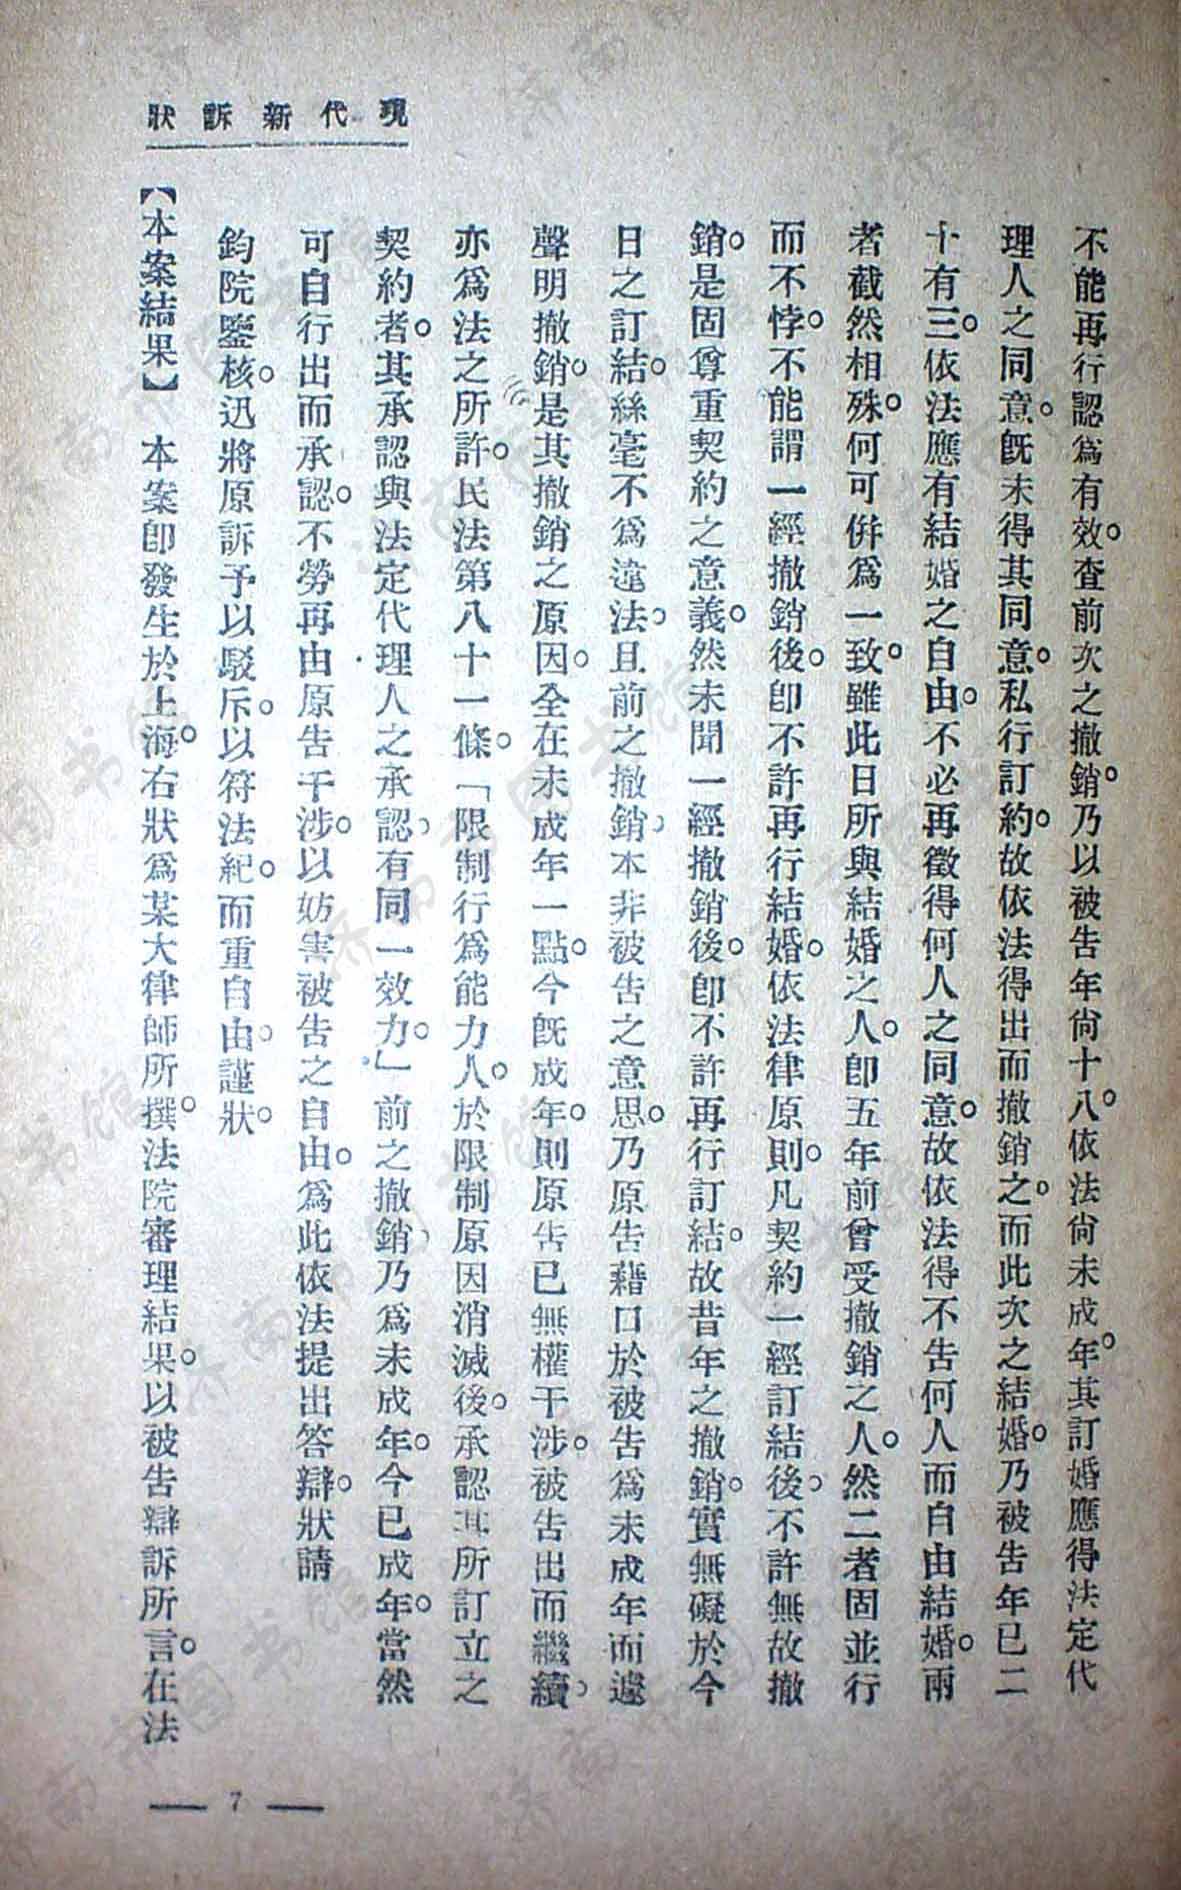 現代新訴狀
不能再行認爲有效。查前次之撤銷。乃以被吿年尙十八。依法尙未成年。其訂婚應得法定代
理人之同意。旣未得其同意。私行訂約。故依法得出而撤銷之。而此次之結婚。乃被吿年已二
十有三。依法應有結婚之自由。不必再徵得何人之同意。故依法得不吿何人而自由結婚。兩
者截然相殊。何可倂爲一致。雖此日所與結婚之人。卽五年前曾受撤銷之人。然二者固並行
而不悖。不能謂一經撤銷後。卽不許再行結婚。依法律原則。凡契約一經訂結後。不許無故撤
銷。是固尊重契約之意義。然未聞一經撤銷後。卽不許再行訂結。故昔年之撤銷。實無礙於今
日之訂結。絲毫不爲違法。且前之撤銷。本非被吿之意思。乃原吿藉口於被吿爲未成年而遽
聲明撤銷。是其撤銷之原因。全在未成年一點。今旣成年。則原吿已無權干涉。被吿出而繼續。
亦爲法之所許。民法第八十一條。「限制行爲能力人。於限制原因消滅後。承認其所訂立之
契約者。其承認與法定代理人之承認。有同一效力。」前之撤銷。乃爲未成年。今已成年。當然
可自行出而承認。不勞再由原吿干涉。以妨害被吿之自由。爲此依法提出答辯。狀請
鈞院鑒核。迅將原訴予以駁斥。以符法紀。而重自由。謹狀。
【本案結果】 本案卽發生於上海。右狀爲某大律師所撰。法院審理結果。以被吿辯訴所言。在法
— 7 —
濟南市图书馆